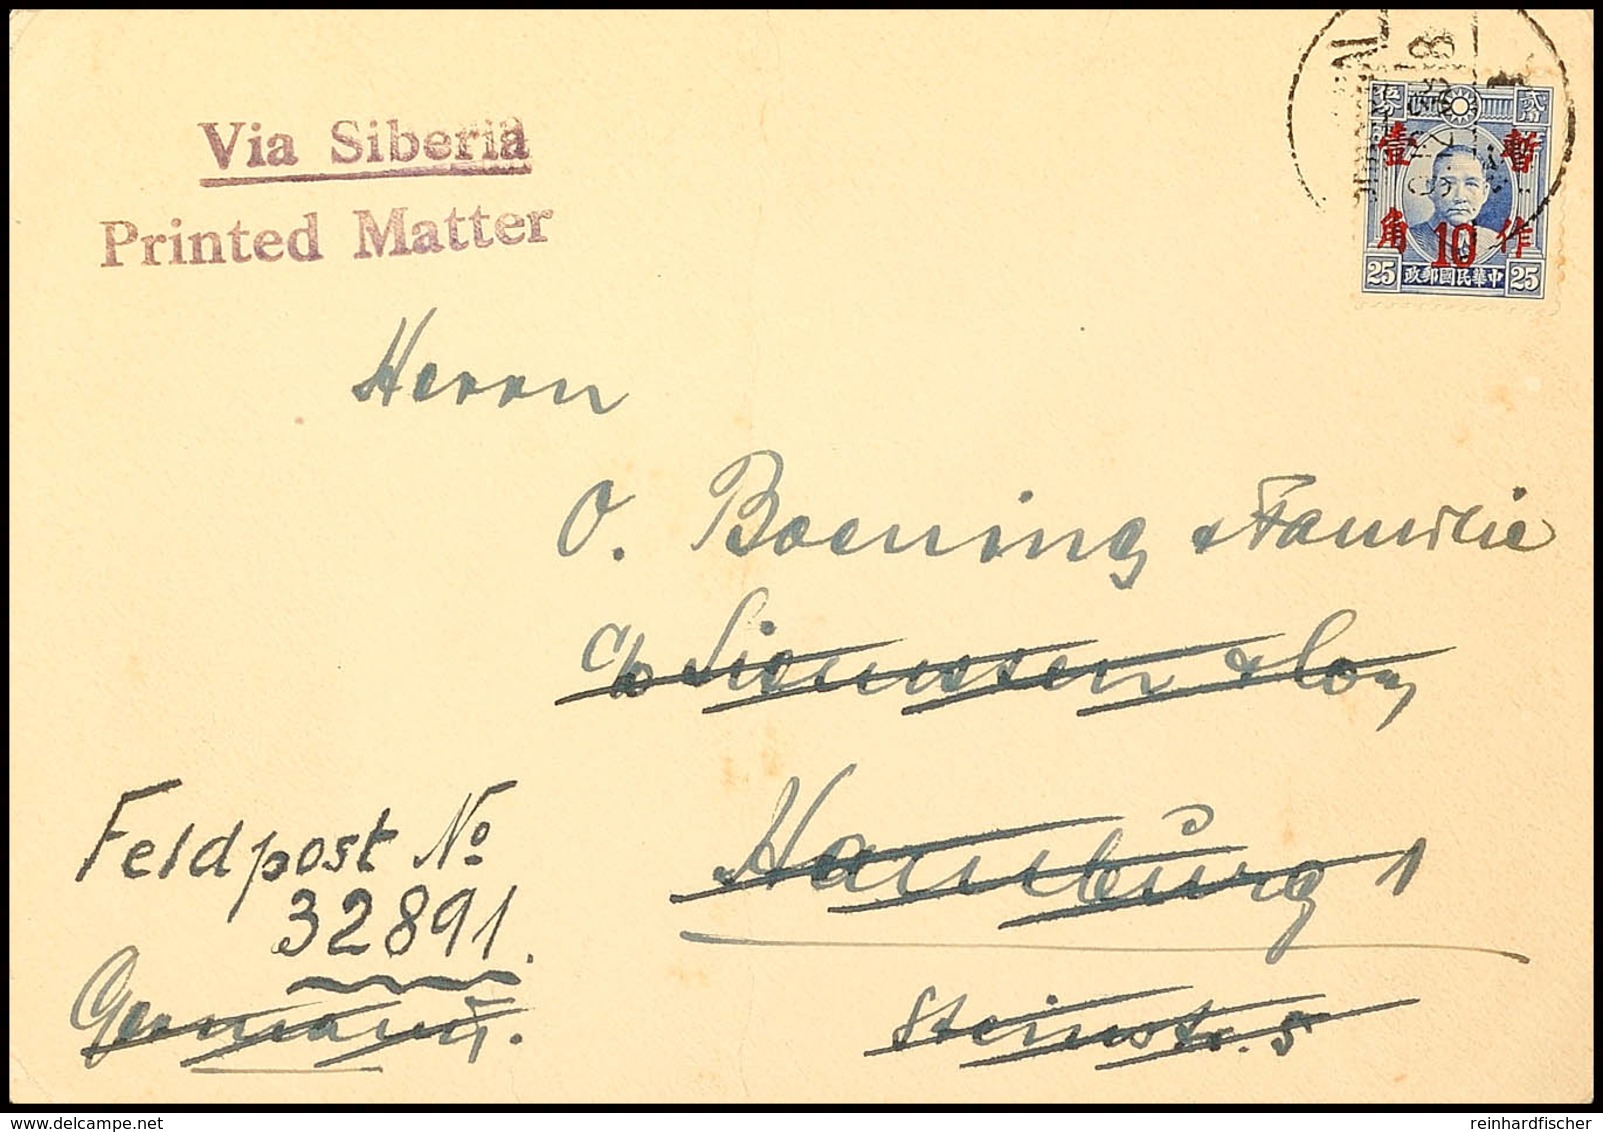 Via Siberia
Printed Matter
伍分 貳角
壹 暫
角 10 作
25 政郵國民華中 25
Herrn
O. Boening & Familie
c/o Siemssen & Co.
Hamburg 1
Steinstr. 5
Feldpost No
32891.
Germany.
delcampe.net
reinhardfischer